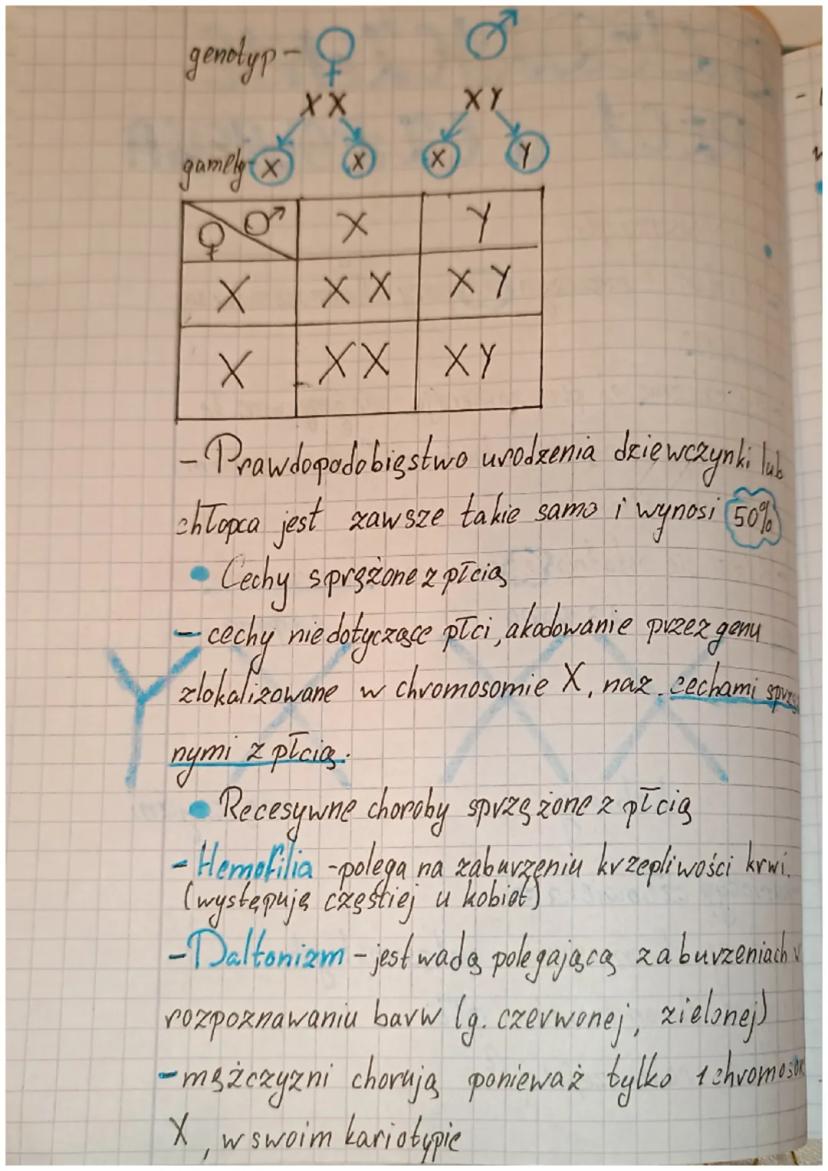 genotyp - ♀ ♂
XX XY
gamety X X X Y
♀ ♂ X Y
X XX XY
X XX XY
- Prawdopodobięstwo urodzenia dziewczynki lub
chłopca jest zawsze takie samo i wynosi 50%
• Cechy sprzężone z płcią
- cechy niedotyczące płci, akodowanie przez genu
zlokalizowane w chromosomie X, naz. cechami sprzę
nymi z płcią.
• Recesywne choroby sprzężone z płcią
- Hemofilia - polega na zaburzeniu krzepliwości krwi.
(występuję częśtiej u kobiet)
- Daltonizm - jest wadą polegającą zaburzeniach w
rozpoznawaniu barw (g. czerwonej, zielonej)
- mężczyzni chorują ponieważ tylko 1 chromosom
X, w swoim kariotypie